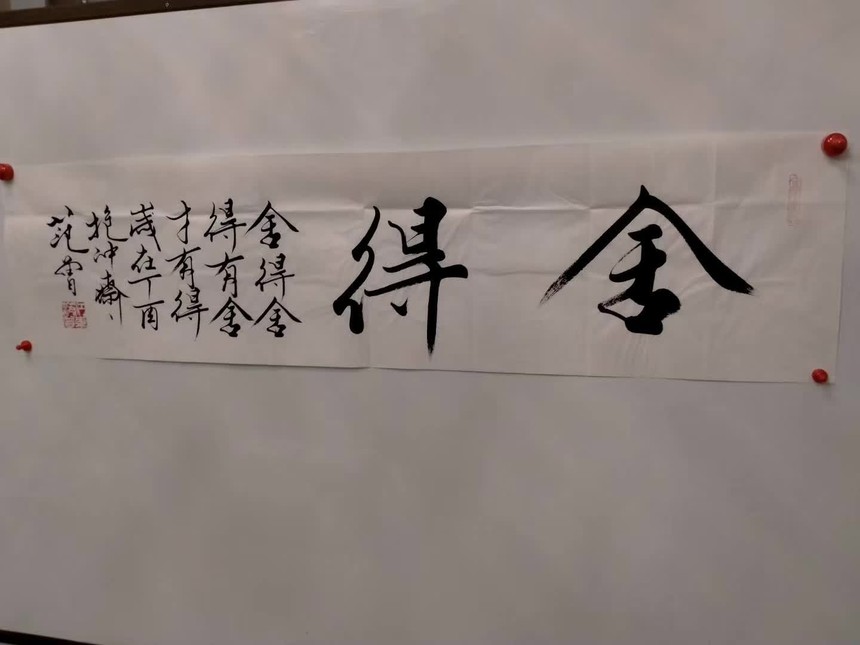 舍得
舍得舍
得有舍
才有得
歲在丁酉
抱冲齋
范曾